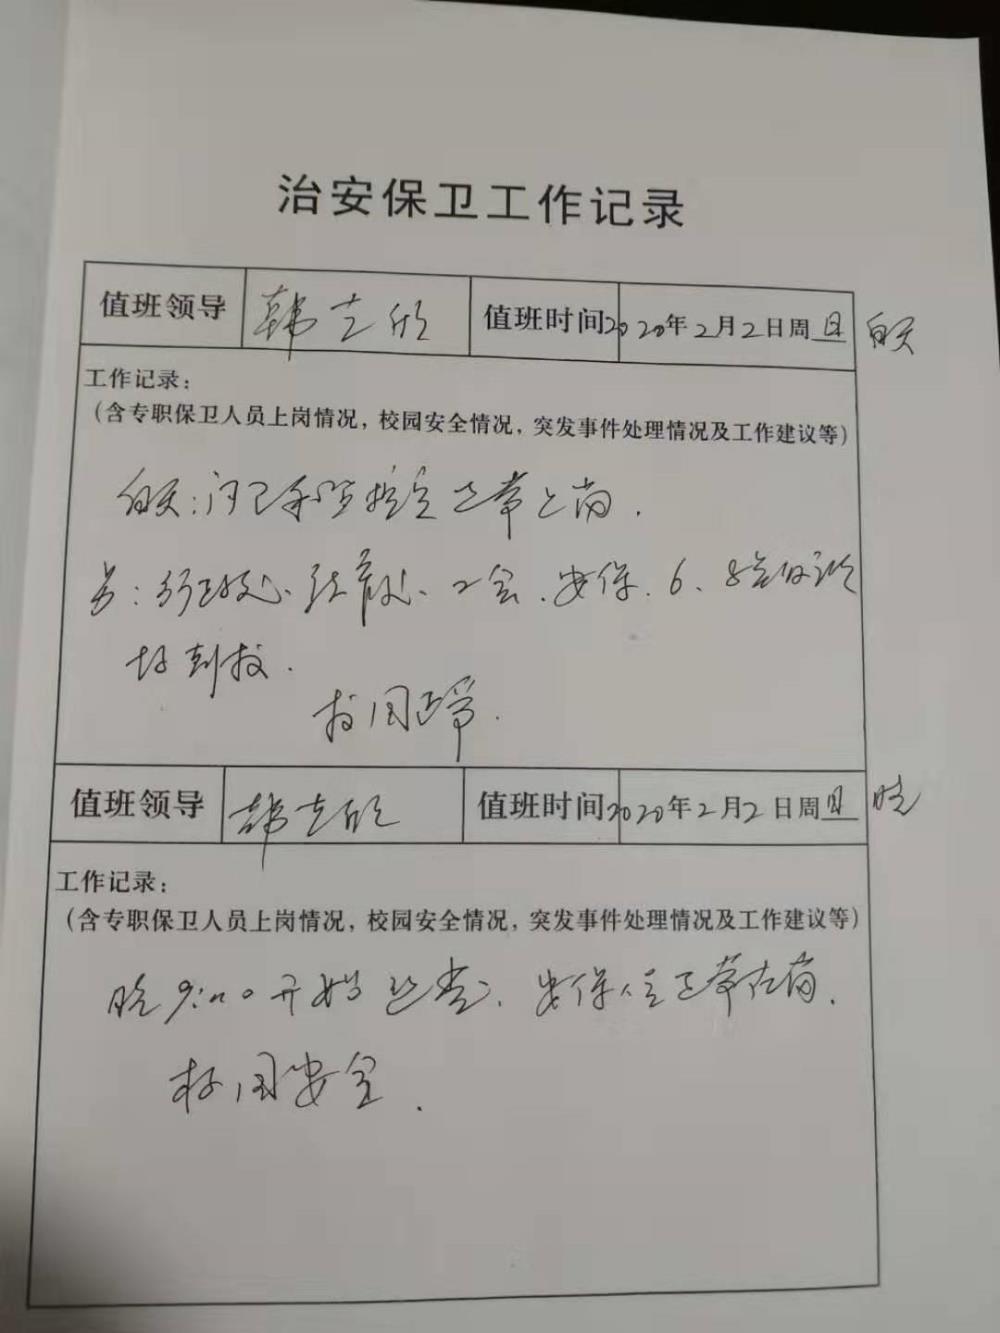 治安保卫工作记录
值班领导 韩志欣 值班时间 2020年2月2日周日 白天
工作记录：
（含专职保卫人员上岗情况，校园安全情况，突发事件处理情况及工作建议等）
白天：门卫和监控室正常上岗．
安保．6．
均到校．
校园正常．
值班领导 韩志欣 值班时间 2020年2月2日周日 晚
工作记录：
（含专职保卫人员上岗情况，校园安全情况，突发事件处理情况及工作建议等）
晚9:00开始巡查，安保人员正常在岗．
校园安全．